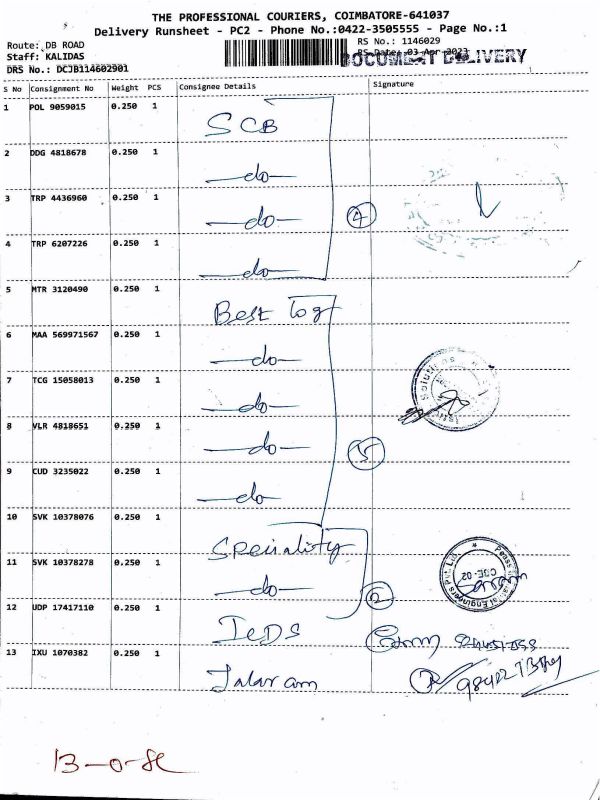 THE PROFESSIONAL COURIERS, COIMBATORE-641037
Delivery Runsheet - PC2 - Phone No.:0422-3505555 - Page No.:1
Route: DB ROAD
RS No.: 1146029
Staff: KALIDAS
RS Date: 03 Apr 2023
DOCUMENT DELIVERY
DRS No.: DCJB114602901
S No Consignment No Weight PCS Consignee Details Signature
1 POL 9059015 0.250 1 SCB
2 DDG 4818678 0.250 1 -do-
3 TRP 4436960 0.250 1 -do- 4
4 TRP 6207226 0.250 1 -do-
5 MTR 3120490 0.250 1 Best log
6 MAA 569971567 0.250 1 -do-
7 TCG 15058013 0.250 1 -do-
8 VLR 4818651 0.250 1 -do- 5
9 CUD 3235022 0.250 1 -do-
10 SVK 10378076 0.250 1 Speciality
11 SVK 10378278 0.250 1 -do- 2
12 UDP 17417110 0.250 1 IEDS
13 IXU 1070382 0.250 1 Jalaram
13-0-